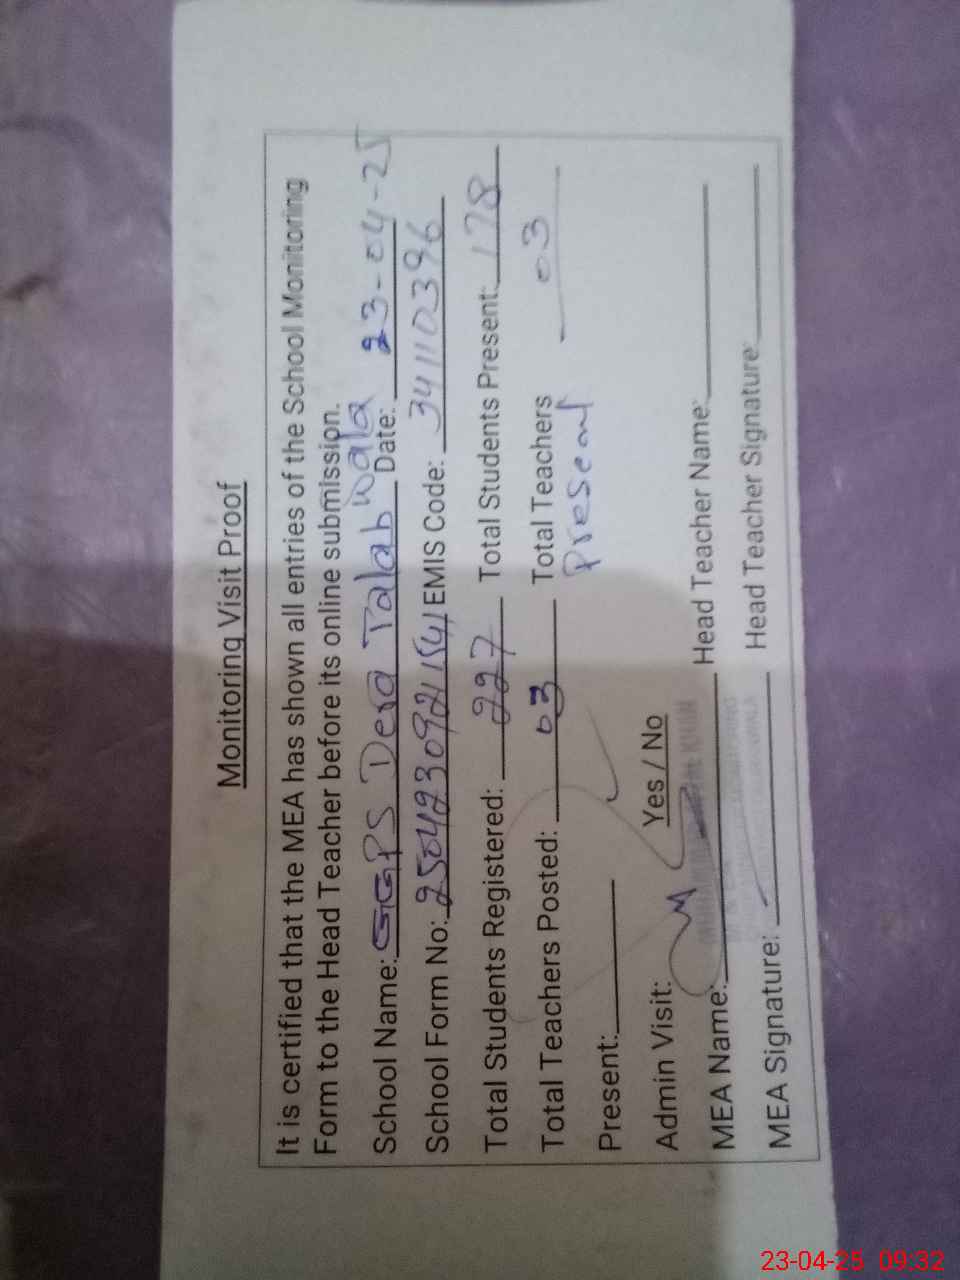 Monitoring Visit Proof
It is certified that the MEA has shown all entries of the School Monitoring
Form to the Head Teacher before its online submission.
School Name: GGPS Dera Talab wala Date: 23-04-25
School Form No: 2504230921541 EMIS Code: 34110396
Total Students Registered: 227 Total Students Present: 178
Total Teachers Posted: 03 Total Teachers 03
Present: Present
Admin Visit: Yes / No
MEA Name: Head Teacher Name:
MEA Signature: Head Teacher Signature:
23-04-25 09:32